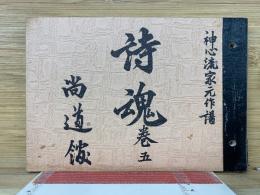 神心流家元作譜
詩魂
巻五
尚道館